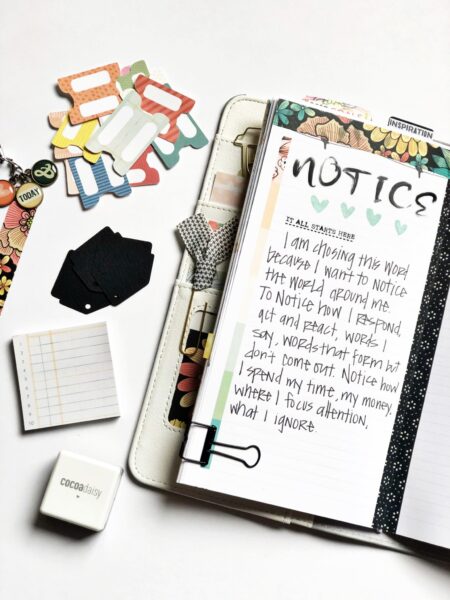 INSPIRATION
NOTICE
IT ALL STARTS HERE
I am chosing this word
because I want to notice
the world around me.
To Notice how I respond,
act and react, words I
say, words that form but
don't come out. Notice how
I spend my time, my money,
where I focus attention,
what I ignore.
&
TODAY
cocoadaisy